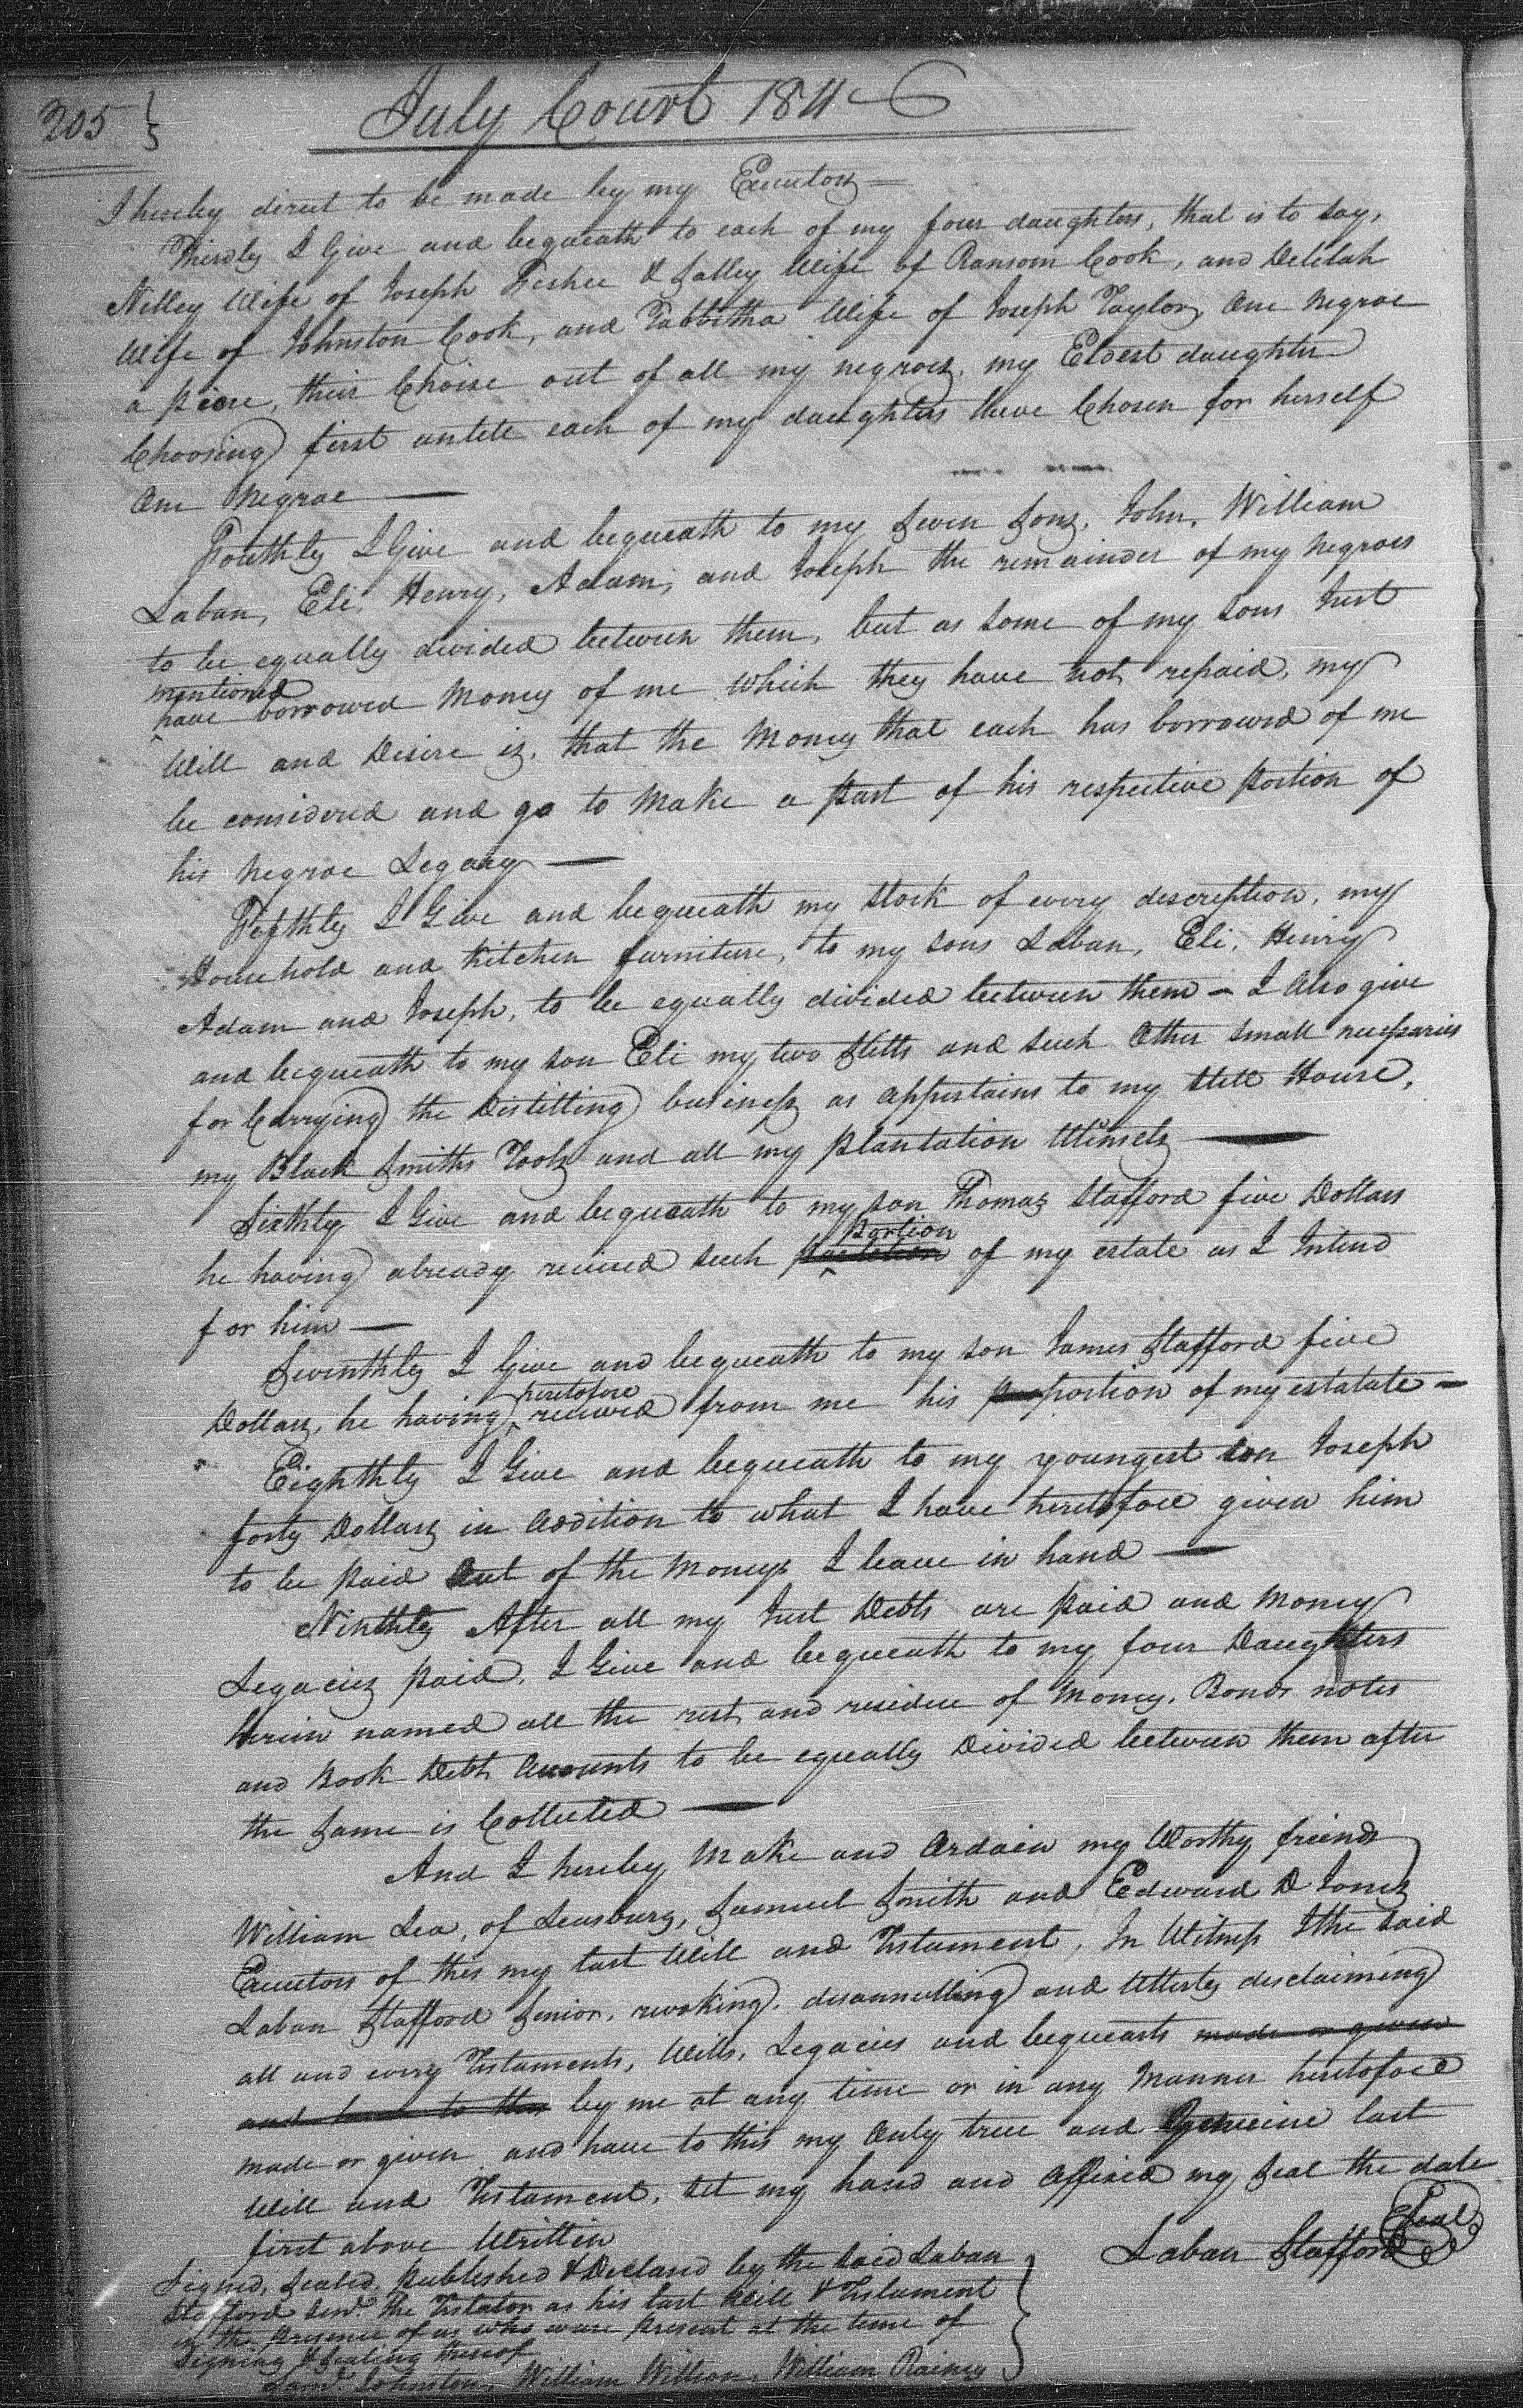 205
July Court 1811
I hereby direct to be made by my Executors
Thirdly I Give and bequeath to each of my four daughters, that is to say,
Nelley Wife of Joseph & Salley Wife of Ransom Cook, and Delilah
Wife of Johnston Cook, and Tabbitha Wife of Joseph Taylor, One negroe
a piece, their Choise out of all my negroes, my Eldest daughter
Choosing first untill each of my daughters have Chosen for herself
One Negroe
Fouthly I Give and bequeath to my Seven Sons, John, William
Laban, Eli, Henry, Adam, and Joseph the remainder of my negroes
to be equally divided between them, but as some of my sons Just
mentioned
have borrowed Money of me which they have not repaid, my
Will and Desire is, that the Money that each has borrowed of me
be considered and go to Make a part of his respective portion of
his negroe Legacy
Fifthly I Give and bequeath my Stock of every description, my
Household and Kitchen furniture, to my sons Laban, Eli, Henry
Adam and Joseph, to be equally divided between them - I Also give
and bequeath to my son Eli my two Stills and such Other small necessaries
for Carrying the Distilling business as appertains to my Still House,
my Black Smiths Tools and all my plantation Utinsels
Sixthly I Give and bequeath to my son Thomas Stafford five Dollars
portion
he having already recieved such of my estate as I Intend
for him
Seventhly I Give and bequeath to my son James Stafford five
heretofore
Dollars, he having recieved from me his portion of my estatate
Eighthly I Give and bequeath to my youngest son Joseph
forty Dollars in Addition to what I have heretofore given him
to be paid Out of the Moneys I leave in hand
Ninthly After all my Just Debts are paid and Money
Legacies paid, I Give and bequeath to my four Daughters
herein named all the rest and residue of Money, Bonds notes
and Book Debt Accounts to be equally Divided between them after
the Same is Collected
And I hereby Make and Ordain my Worthy friends
William Lea, of Leasburg, Samuel Smith and Edward D Jones
Executors of this my last Will and Testament, In Witness I the said
Laban Stafford Senior, revoking, disannulling and Utterly disclaiming
all and every Testaments, Wills, Legacies and bequeasts made or given
and have to this by me at any time or in any Manner heretofore
made or given and have to this my Only true and Genuine last
Will and Testament, set my hand and Affixed my Seal the date
first above Written
Laban Stafford Seal
Signed, Sealed, published & Declared by the said Laban
Stafford Senr. the Testator as his last Will & Testament
in the presence of us who ware present at the time of
Signing & Sealing thereof
Johnston, William Willson, William Rainey